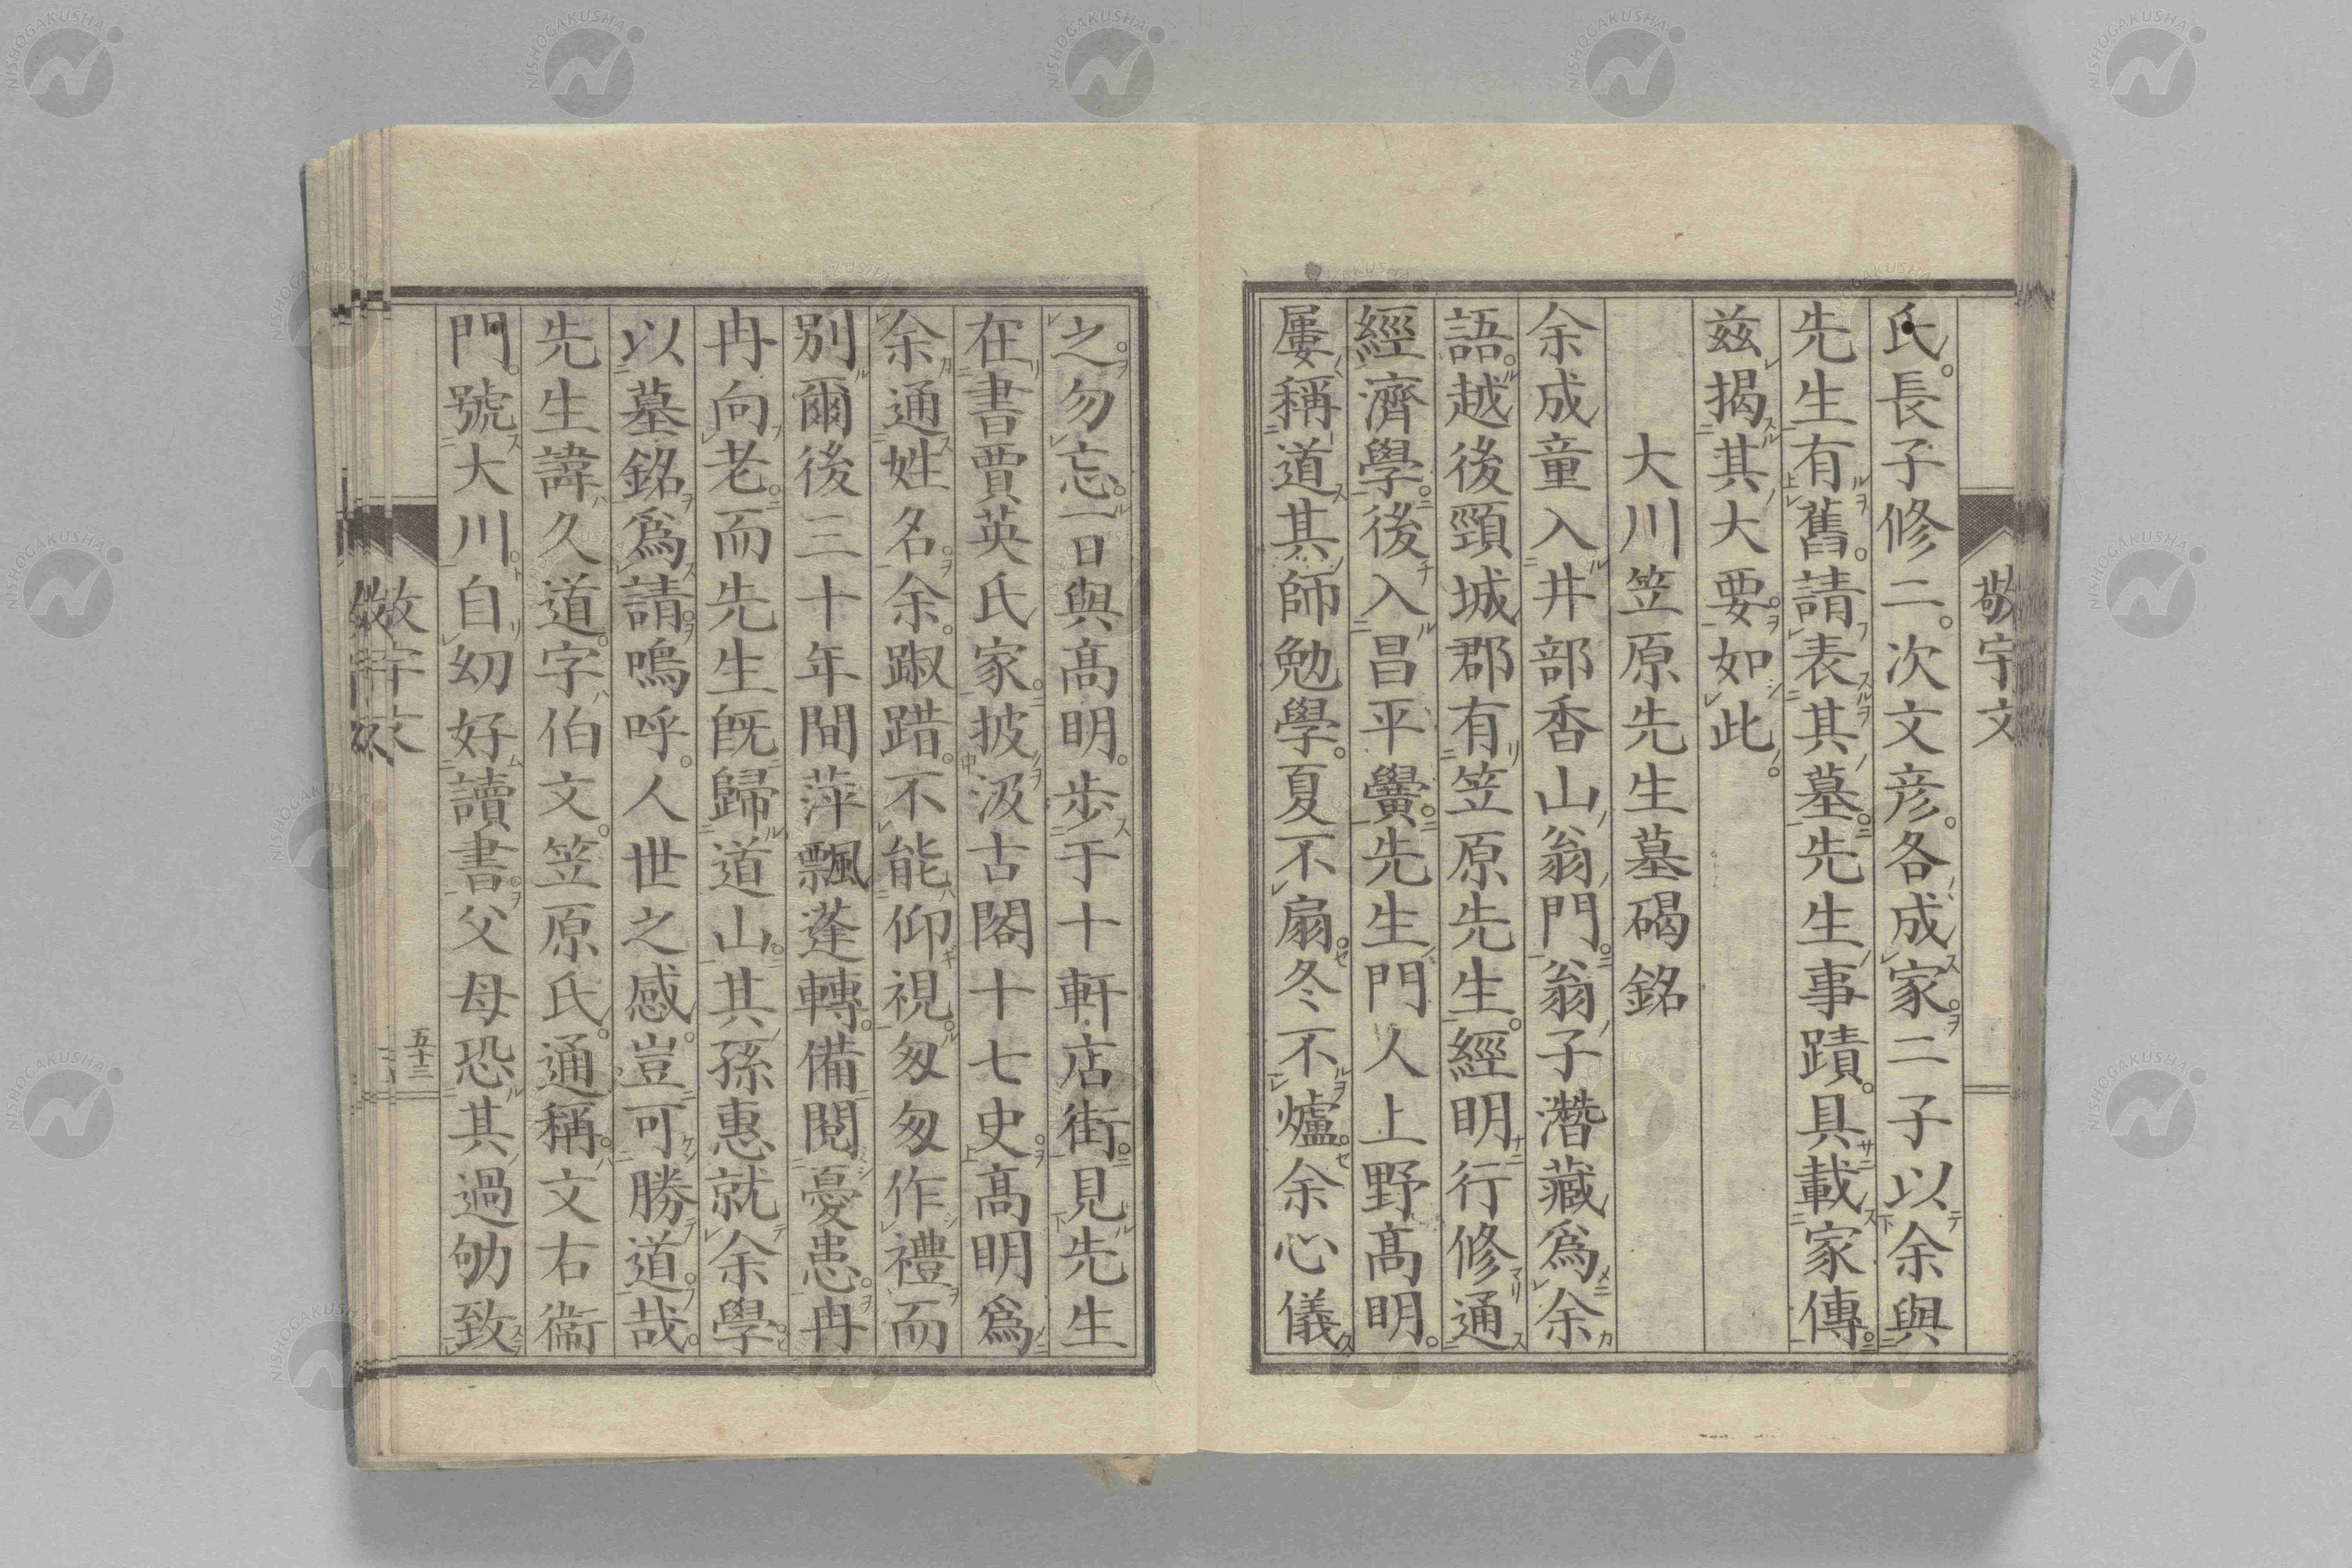 敬宇文
氏。長子修二。次文彦。各成家。二子以余與
先生有舊。請表其墓。先生事蹟。具載家傳。
茲揭其大要。如此。
大川笠原先生墓碣銘
余成童入井部香山翁門。翁子潛藏爲余
語。越後頸城郡有笠原先生。經明行修通
經濟學。後入昌平黌。先生門人上野高明。
屢稱道其師勉學。夏不扇。冬不爐。余心儀
之。勿忘。一日與高明。步于十軒店街。見先生
在書賈英氏家。披汲古閣十七史。高明爲
余通姓名。余踧踖。不能仰視。匆匆作禮而
別爾後三十年間萍飄蓬轉。備閱憂患。冉
冉向老。而先生既歸道山。其孫惠就余學。
以墓銘爲請。嗚呼。人世之感。豈可勝道哉。
先生諱久道。字伯文。笠原氏。通稱。文右衞
門。號大川。自幼好讀書。父母恐其過劬致
五十三